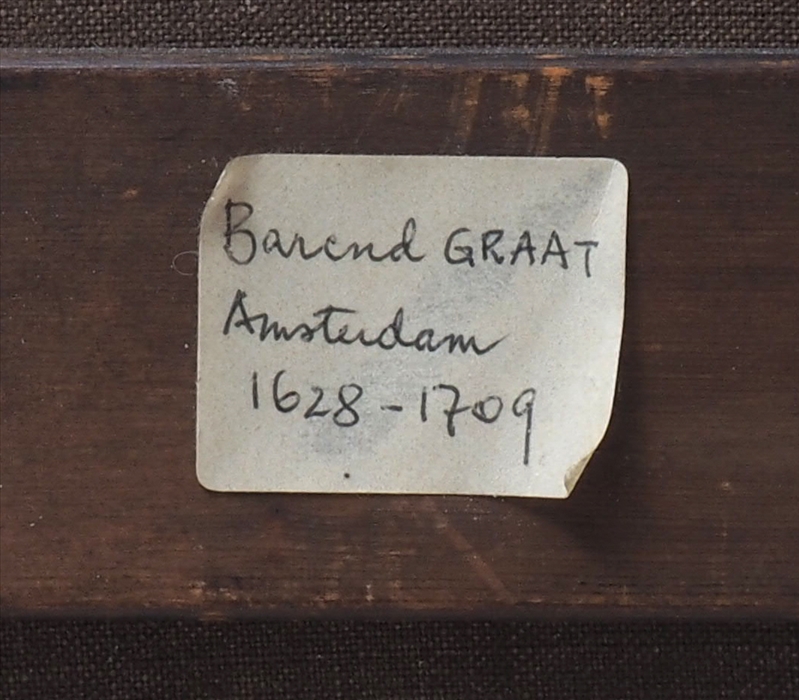 Barend GRAAT
Amsterdam
1628-1709